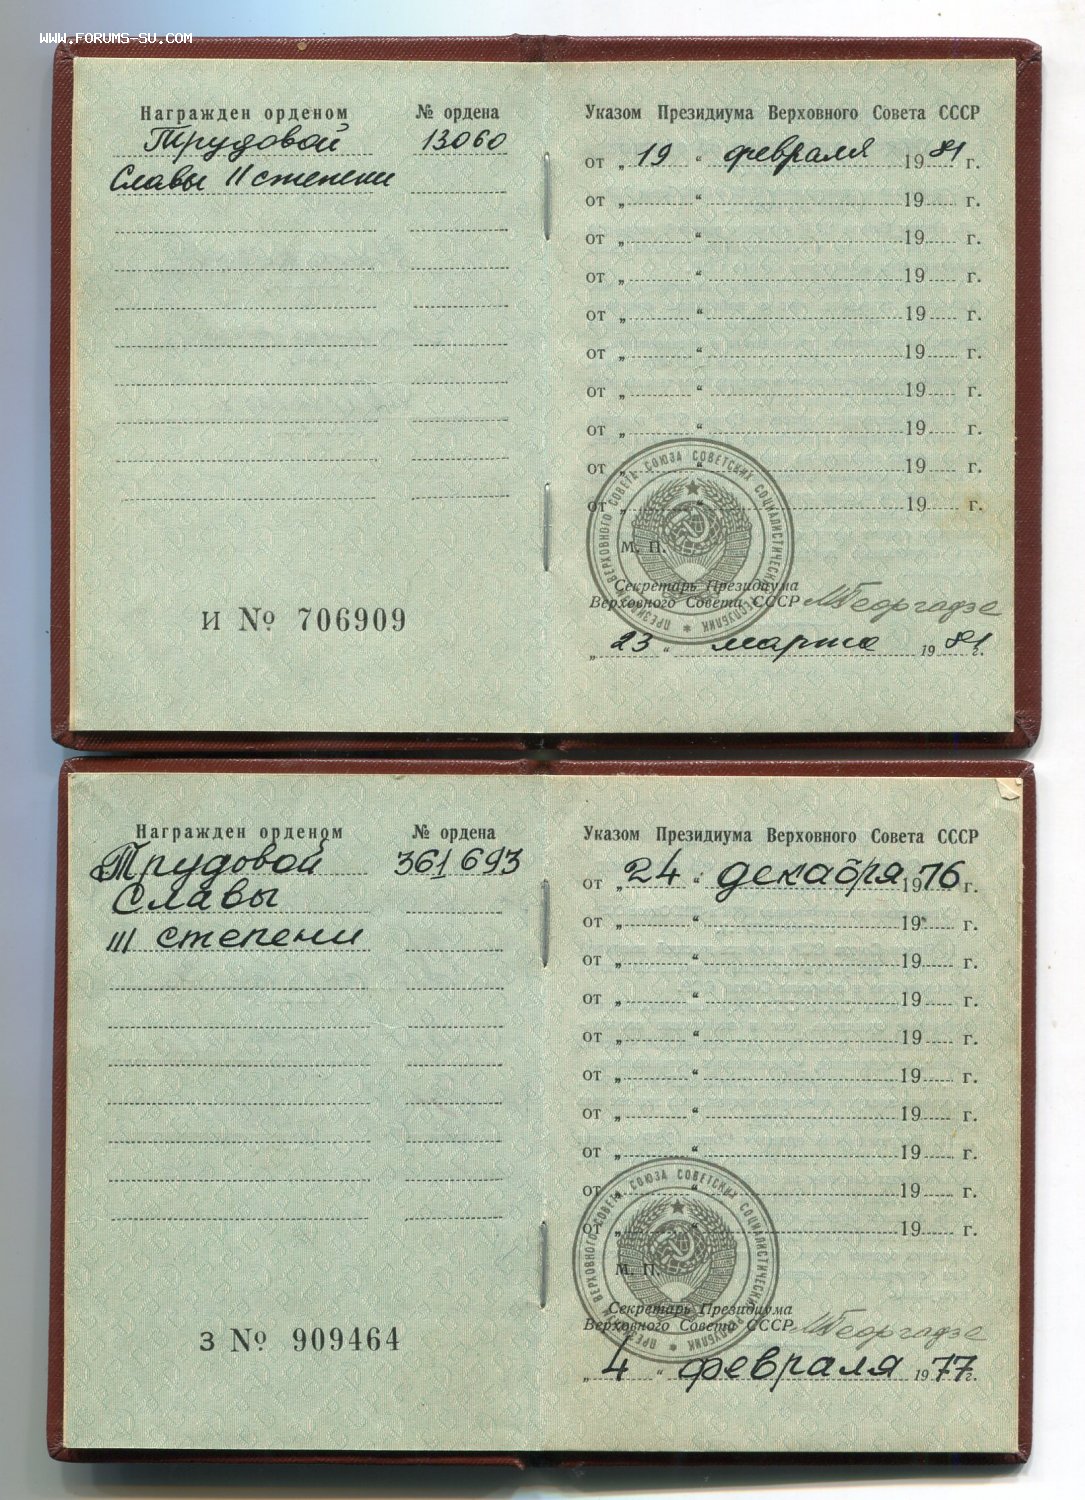 WWW.FORUMS-SU.COM
Награжден орденом № ордена
Трудовой 13060
Славы II степени
И № 706909
Указом Президиума Верховного Совета СССР
от „ 19 “ февраля 19 81 г.
от „ “ 19 г.
от „ “ 19 г.
от „ “ 19 г.
от „ “ 19 г.
от „ “ 19 г.
от „ “ 19 г.
от „ “ 19 г.
от „ “ 19 г.
от „ “ 19 г.
ПРЕЗИДИУМ ВЕРХОВНОГО СОВЕТА СОЮЗА СОВЕТСКИХ СОЦИАЛИСТИЧЕСКИХ РЕСПУБЛИК
М. П.
Секретарь Президиума
Верховного Совета СССР МГеоргадзе
„ 23 “ марта 19 81 г.
Награжден орденом № ордена
Трудовой 361693
Славы
III степени
З № 909464
Указом Президиума Верховного Совета СССР
от „ 24 “ декабря 1976 г.
от „ “ 19 г.
от „ “ 19 г.
от „ “ 19 г.
от „ “ 19 г.
от „ “ 19 г.
от „ “ 19 г.
от „ “ 19 г.
от „ “ 19 г.
от „ “ 19 г.
ПРЕЗИДИУМ ВЕРХОВНОГО СОВЕТА СОЮЗА СОВЕТСКИХ СОЦИАЛИСТИЧЕСКИХ РЕСПУБЛИК
М. П.
Секретарь Президиума
Верховного Совета СССР МГеоргадзе
„ 4 “ февраля 1977 г.